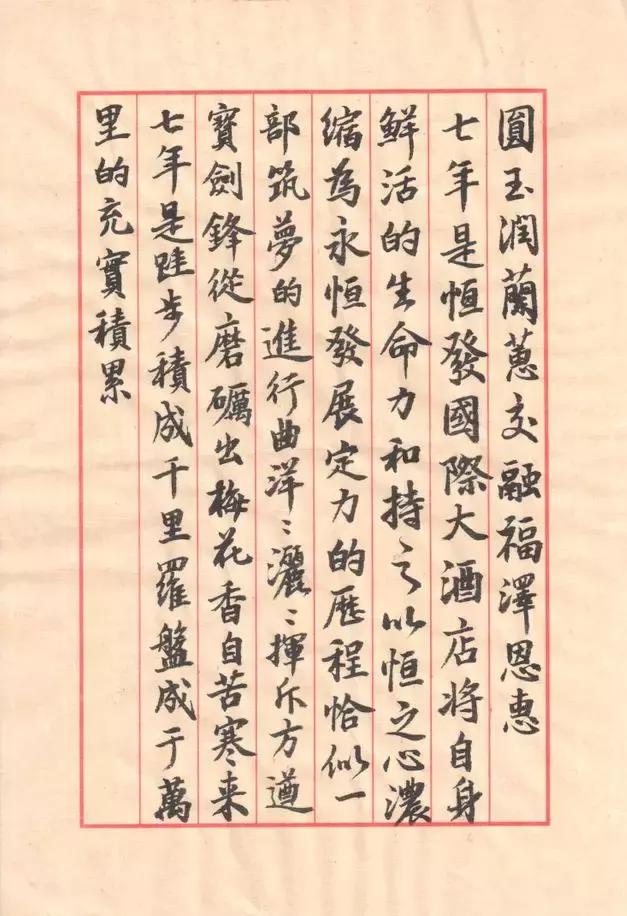 圓玉潤蘭蕙交融福澤恩惠
七年是恒發國際大酒店将自身
鮮活的生命力和持之以恒之心濃
缩為永恒發展定力的歷程恰似一
部筑夢的進行曲洋〻灑〻揮斥方遒
寶劍鋒從磨礪出梅花香自苦寒来
七年是跬步積成千里羅盤成于萬
里的充實積累